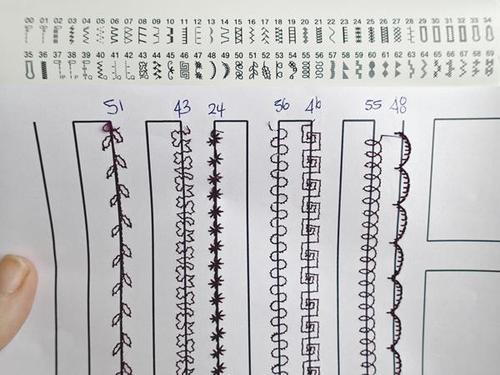 00 01 02 03 04 05 06 07 08 09 10 11 12 13 14 15 16 17 18 19 20 21 22 23 24 25 26 27 28 29 30 31 32 33 34
35 36 37 38 39 40 41 42 43 44 45 46 47 48 49 50 51 52 53 54 55 56 57 58 59 60 61 62 63 64 65 66 67 68 69
51 43 24 56 46 55 48